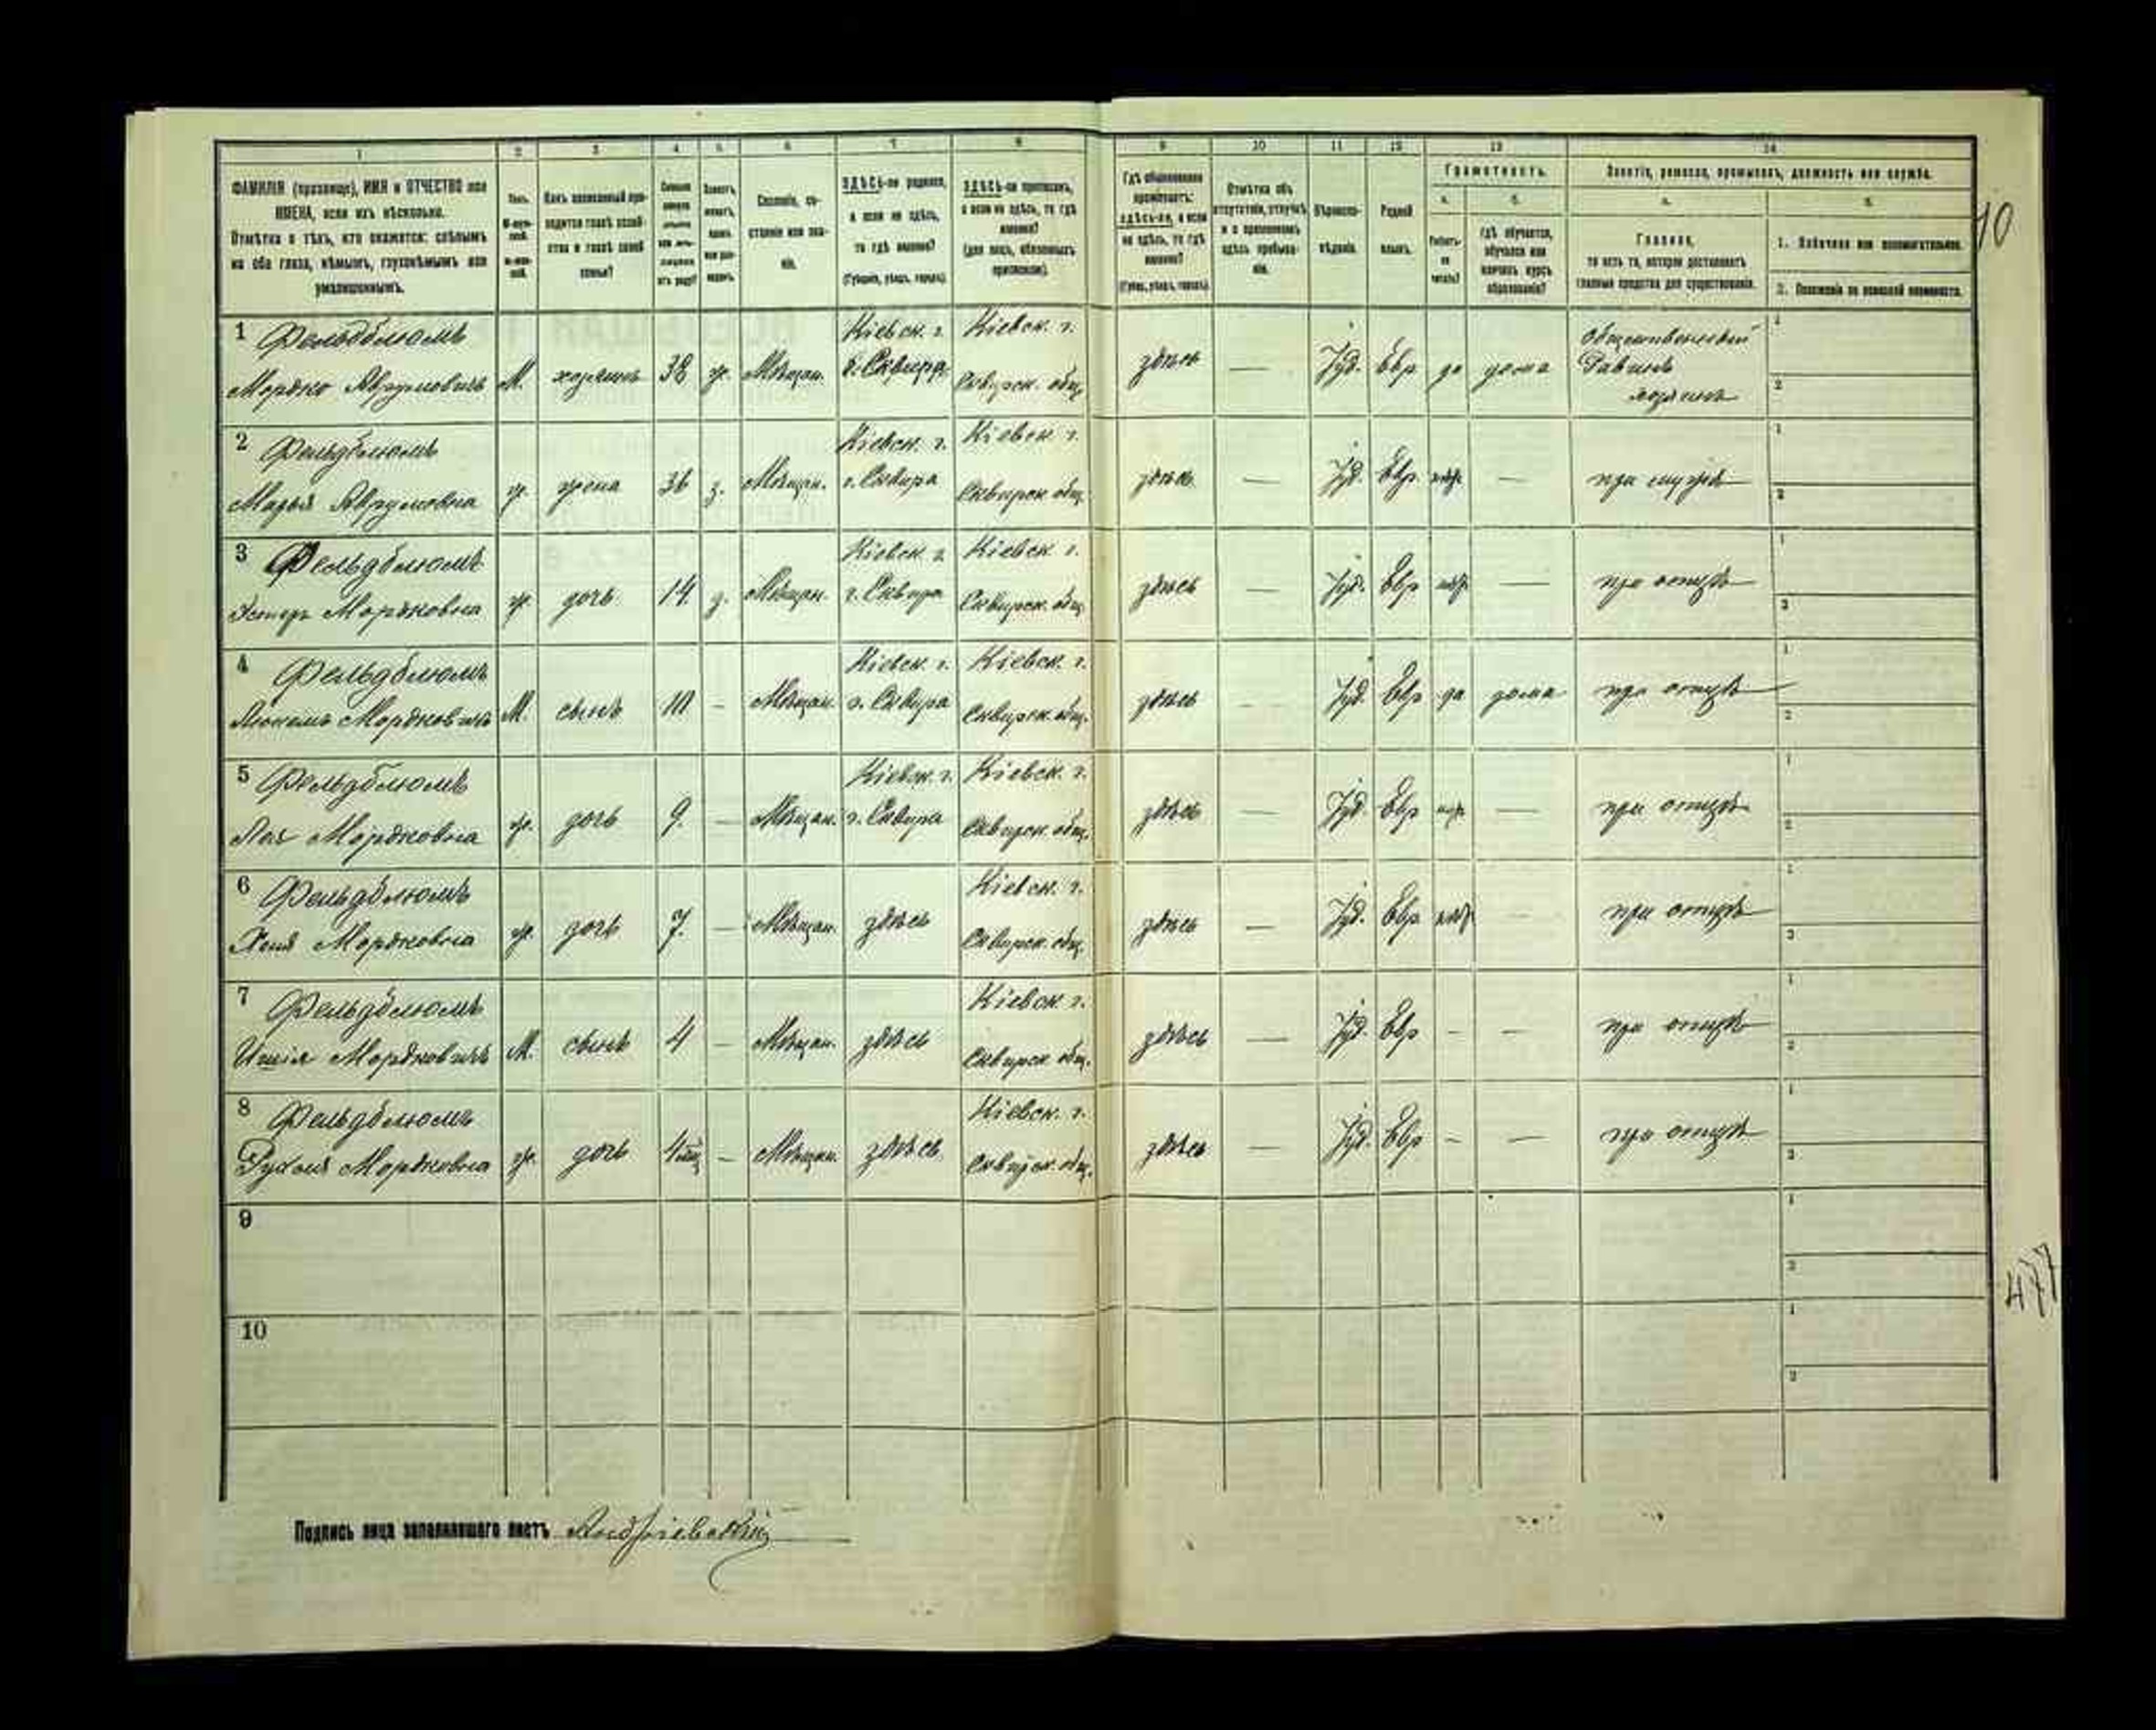 1
2
3
4
5
6
7
8
9
10
11
12
13
14
ФАМИЛІЯ (прозвище), ИМЯ и ОТЧЕСТВО или
ИМЕНА, если ихъ нѣсколько.
Отмѣтка о тѣхъ, кто окажется: слѣпымъ
на оба глаза, нѣмымъ, глухонѣмымъ или
умалишеннымъ.
Полъ.
Какъ записанный при-
ходится главѣ хозяй-
ства и главѣ своей
семьи?
Сословіе, со-
стояніе или зва-
ніе.
ЗДѢСЬ-ли родился,
а если не здѣсь,
то гдѣ именно?
(Губернія, уѣздъ, городъ).
ЗДѢСЬ-ли приписанъ,
а если не здѣсь, то гдѣ
именно?
(для лицъ, обязанныхъ
припискою).
Гдѣ обыкновенно
проживаетъ:
здѣсь-ли, а если
не здѣсь, то гдѣ
именно?
(Губер., уѣздъ, городъ).
Отмѣтка объ
отсутствіи, отлучкѣ
и о временномъ
здѣсь пребыва-
ніи.
Вѣроиспо-
вѣданіе.
Родной
языкъ.
Грамотность.
а.
б.
Умѣетъ-
ли
читать?
гдѣ обучается,
обучался или
кончилъ курсъ
образованія?
Занятіе, ремесло, промыселъ, должность или служба.
а.
б.
Главное,
то есть то, которое доставляетъ
главныя средства для существованія.
1. Побочное или вспомогательное.
2. Положеніе по воинской повинности.
10
1 Фельдблюмъ
Мордко Аврумовичъ М. хозяинъ 38 ж. Мѣщан. Кіевск. г. г. Сквира Кіевск. г. Сквирск. общ. здѣсь — Іуд. Евр да дома Общественный Равинъ хозяинъ
2 Фельдблюмъ
Марья Аврумовна ж. жена 36 з. Мѣщан. Кіевск. г. г. Сквира Кіевск. г. Сквирск общ. здѣсь — Іуд. Евр. нѣт — при мужѣ
3 Фельдблюмъ
Эстеръ Мордковна ж. дочь 14 д. Мѣщан. Кіевск г. г. Сквира Кіевск г. Сквирск. общ здѣсь — Іуд. Евр нѣт — при отцѣ
4 Фельдблюмъ
Мордковичъ М. сынъ 10 – Мѣщан. Кіевск. г. г. Сквира Кіевск. г. Сквирск. общ. здѣсь — Іуд. Евр да дома при отцѣ
5 Фельдблюмъ
Лея Мордковна ж. дочь 9. — Мѣщан. Кіевск. г. г. Сквира Кіевск. г. Сквирск. общ. здѣсь — Іуд. Евр нѣт — при отцѣ
6 Фельдблюмъ
Мордковна ж. дочь 7. — Мѣщан. здѣсь Кіевск. г. Сквирск. общ. здѣсь — Іуд. Евр нѣт — при отцѣ
7 Фельдблюмъ
Мордковичъ М. сынъ 4 — Мѣщан. здѣсь Кіевск г. Сквирск общ. здѣсь — Іуд. Евр – — при отцѣ
8 Фельдблюмъ
Рухля Мордковна ж. дочь — Мѣщан. здѣсь Кіевск. г. Сквирск. общ. здѣсь — Іуд. Евр – — при отцѣ
9
10
477
Подпись лица заполнявшаго листъ Андріевскій